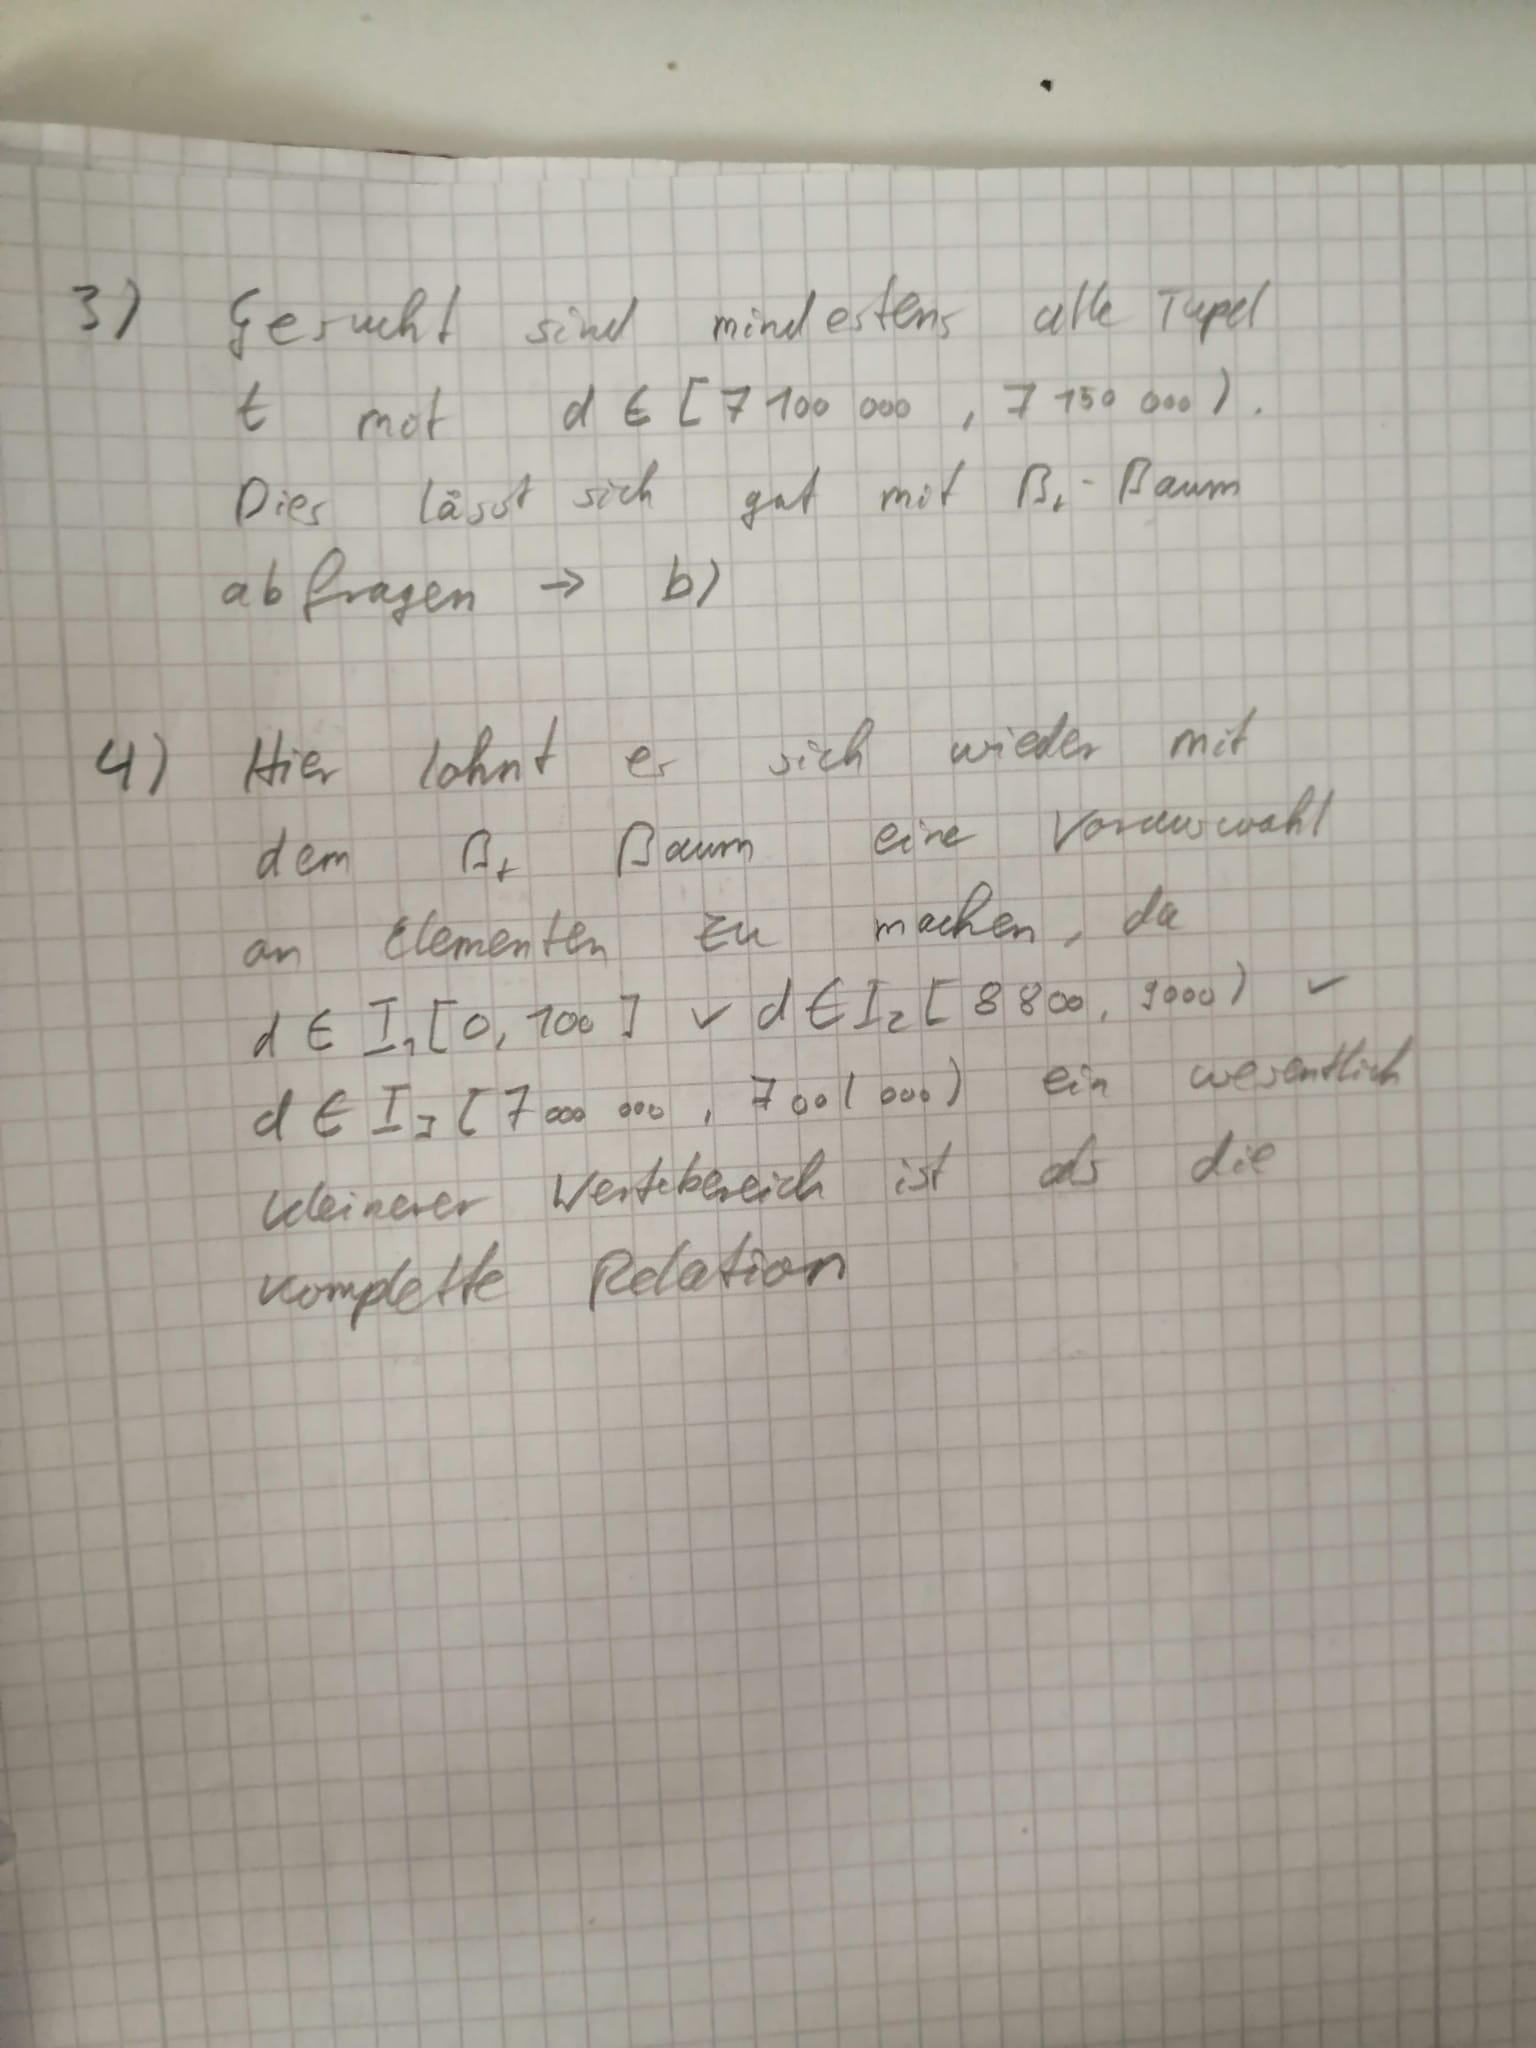 3) Gesucht sind mindestens alle Tupel
t mit d ∈ [7 100 000 , 7 150 000).
Dies lässt sich gut mit B+-Baum
abfragen → b)
4) Hier lohnt es sich wieder mit
dem B+ Baum eine Vorauswahl
an Elementen zu machen, da
d ∈ I₁[0, 100] ∨ d ∈ I₂ [8800, 9000) ∨
d ∈ I₃ [7 000 000 , 7 001 000) ein wesentlich
kleinerer Wertebereich ist als die
komplette Relation